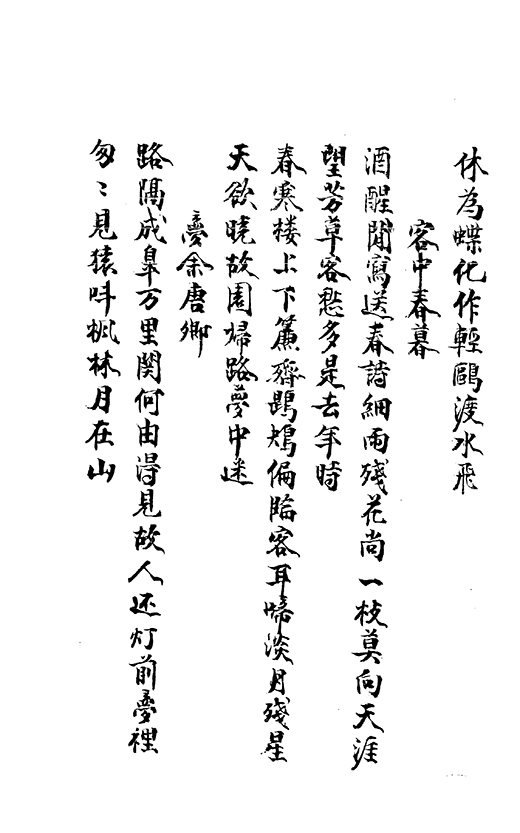 休為蝶化作輕鷗渡水飛
客中春暮
酒醒閒寫送春詩細雨殘花尚一枝莫向天涯
望芳草客愁多是去年時
春寒楼上下簾齊鵾鴂偏臨客耳啼淡月殘星
天欲曉故園歸路夢中迷
夢余唐卿
路隔成皐万里関何由得見故人还灯前夢裡
匆〻見猿呌楓林月在山